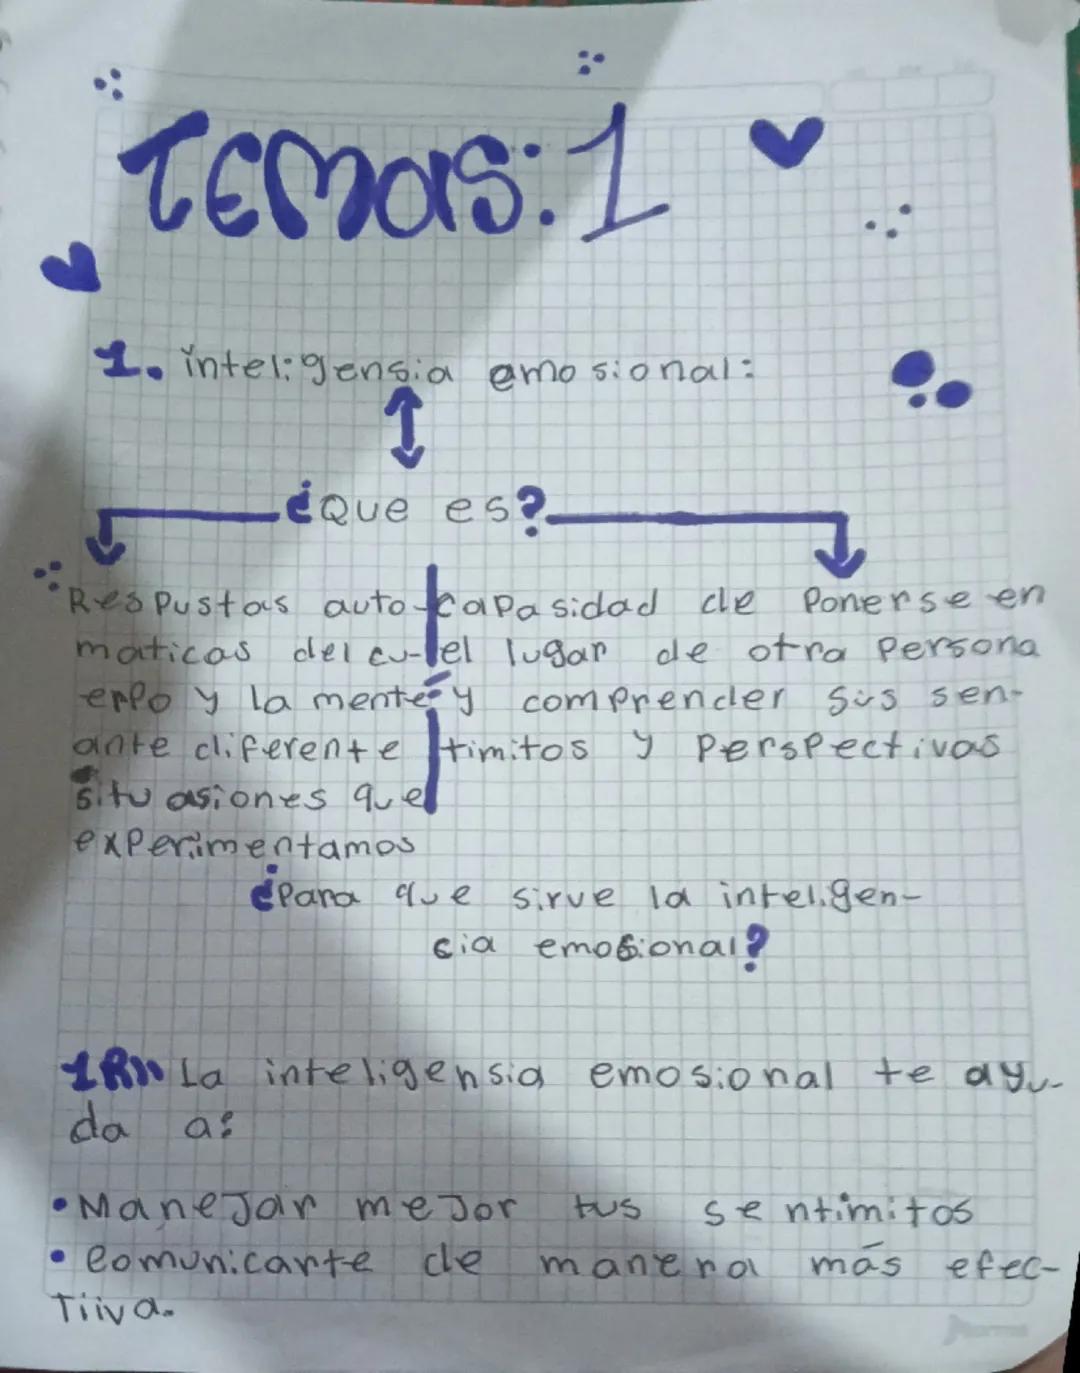 Temas: 1
1. inteligensia emosional:
¿Que es?
Respustas auto-
maticas del cu-
erpo y la mente
ante diferente
situasiones que
experimentamos
capasidad de Ponerse en
el lugar de otra Persona
y comprender sus sen-
timitos y Perspectivas
¿Para que sirve la inteligen-
cia emosional?
1R// La inteligensia emosional te ayu-
da a:
• Manejar mejor tus sentimitos
• Comunicarte de manera más efec-
Tiiva.